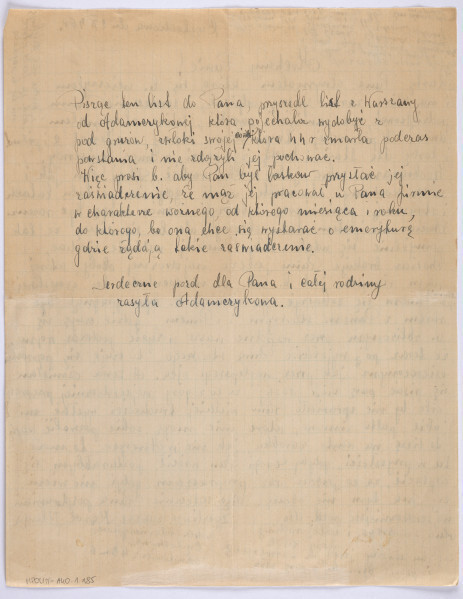 Pisząc ten list do Pana, przyszedł list z Warszawy
od Adamczykowej która pojechała wydobyć z
pod gruzów, zwłoki swojej córki, która h h r zmarła podczas
powstania i nie zdążyli jej pochować.
Więc prosi b. aby Pan był łaskaw przysłać jej
zaświadczenie, że mąż jej pracował w Pana firmie
w charakterze woźnego, od którego miesiąca i roku,
do którego, bo ona chce się wystarać o emeryturę
gdzie żądają takie zaświadczenie.
Serdeczne pozd. dla Pana i całej rodziny
zasyła Adamczykowa.